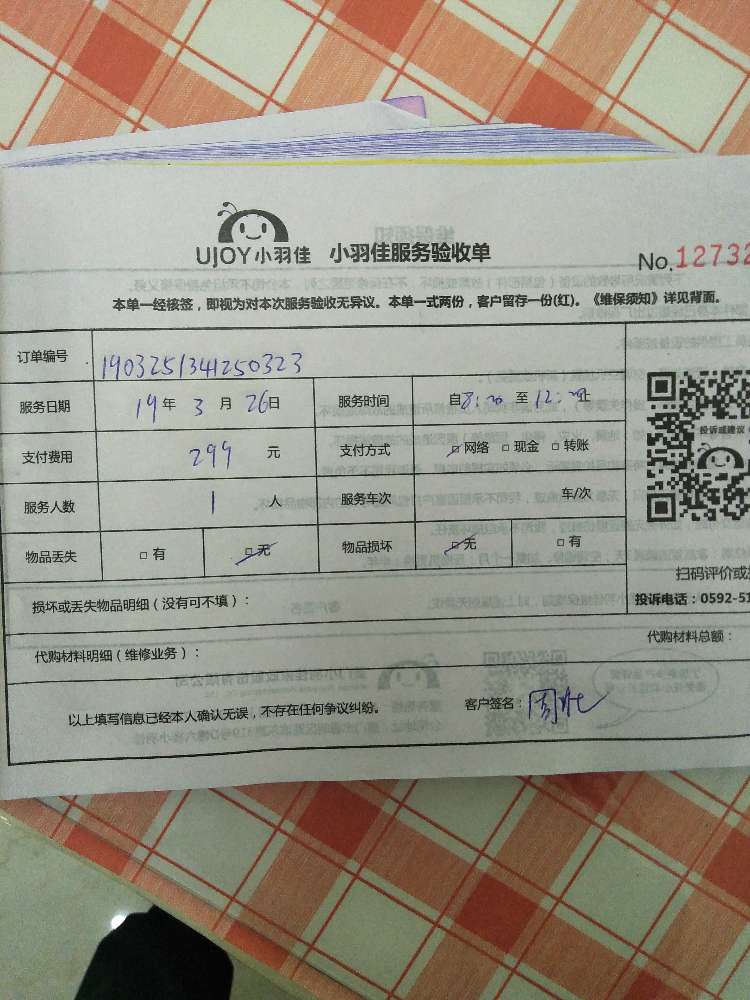 UJOY小羽佳 小羽佳服务验收单
No.12732
本单一经核签，即视为对本次服务验收无异议。本单一式两份，客户留存一份(红)。《维保须知》详见背面。
订单编号 1903251341250323
服务日期 19年 3 月 26日 服务时间 自8:30 至12:30止
支付费用 299 元 支付方式 □网络 □现金 □转账
服务人数 1 人 服务车次 车/次
物品丢失 □有 □无 物品损坏 □无 □有
投诉或建议
扫码评价或
损坏或丢失物品明细（没有可不填）：
投诉电话：0592-51
代购材料明细（维修业务）：
代购材料总额：
以上填写信息已经本人确认无误，不存在任何争议纠纷。 客户签名：